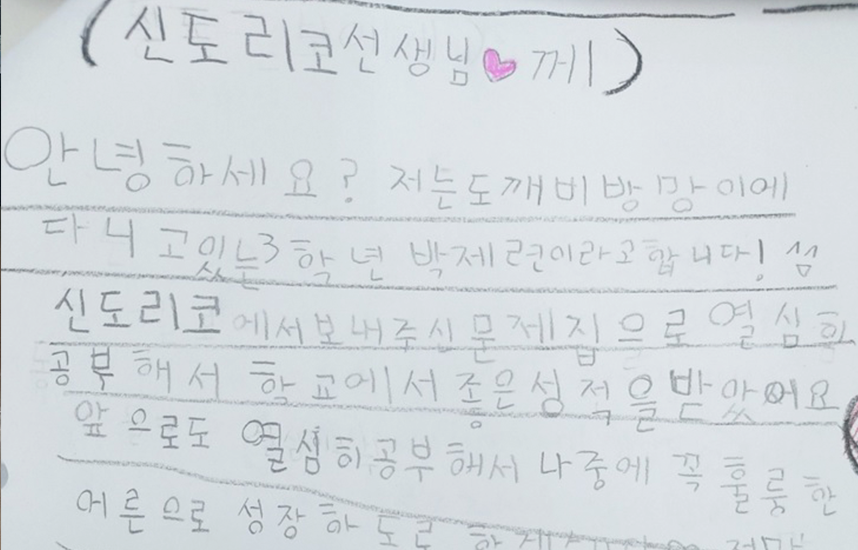 (신도리코선생님♥께)
안녕하세요? 저는도깨비방망이에
다니고있는3학년 박제련이라고합니다! 섬
신도리코에서보내주신문제집으로열심히
공부해서 학교에서좋은성적을받았어요
앞으로도 열심히공부해서나중에 꼭훌륭한
어른으로 성장하도록